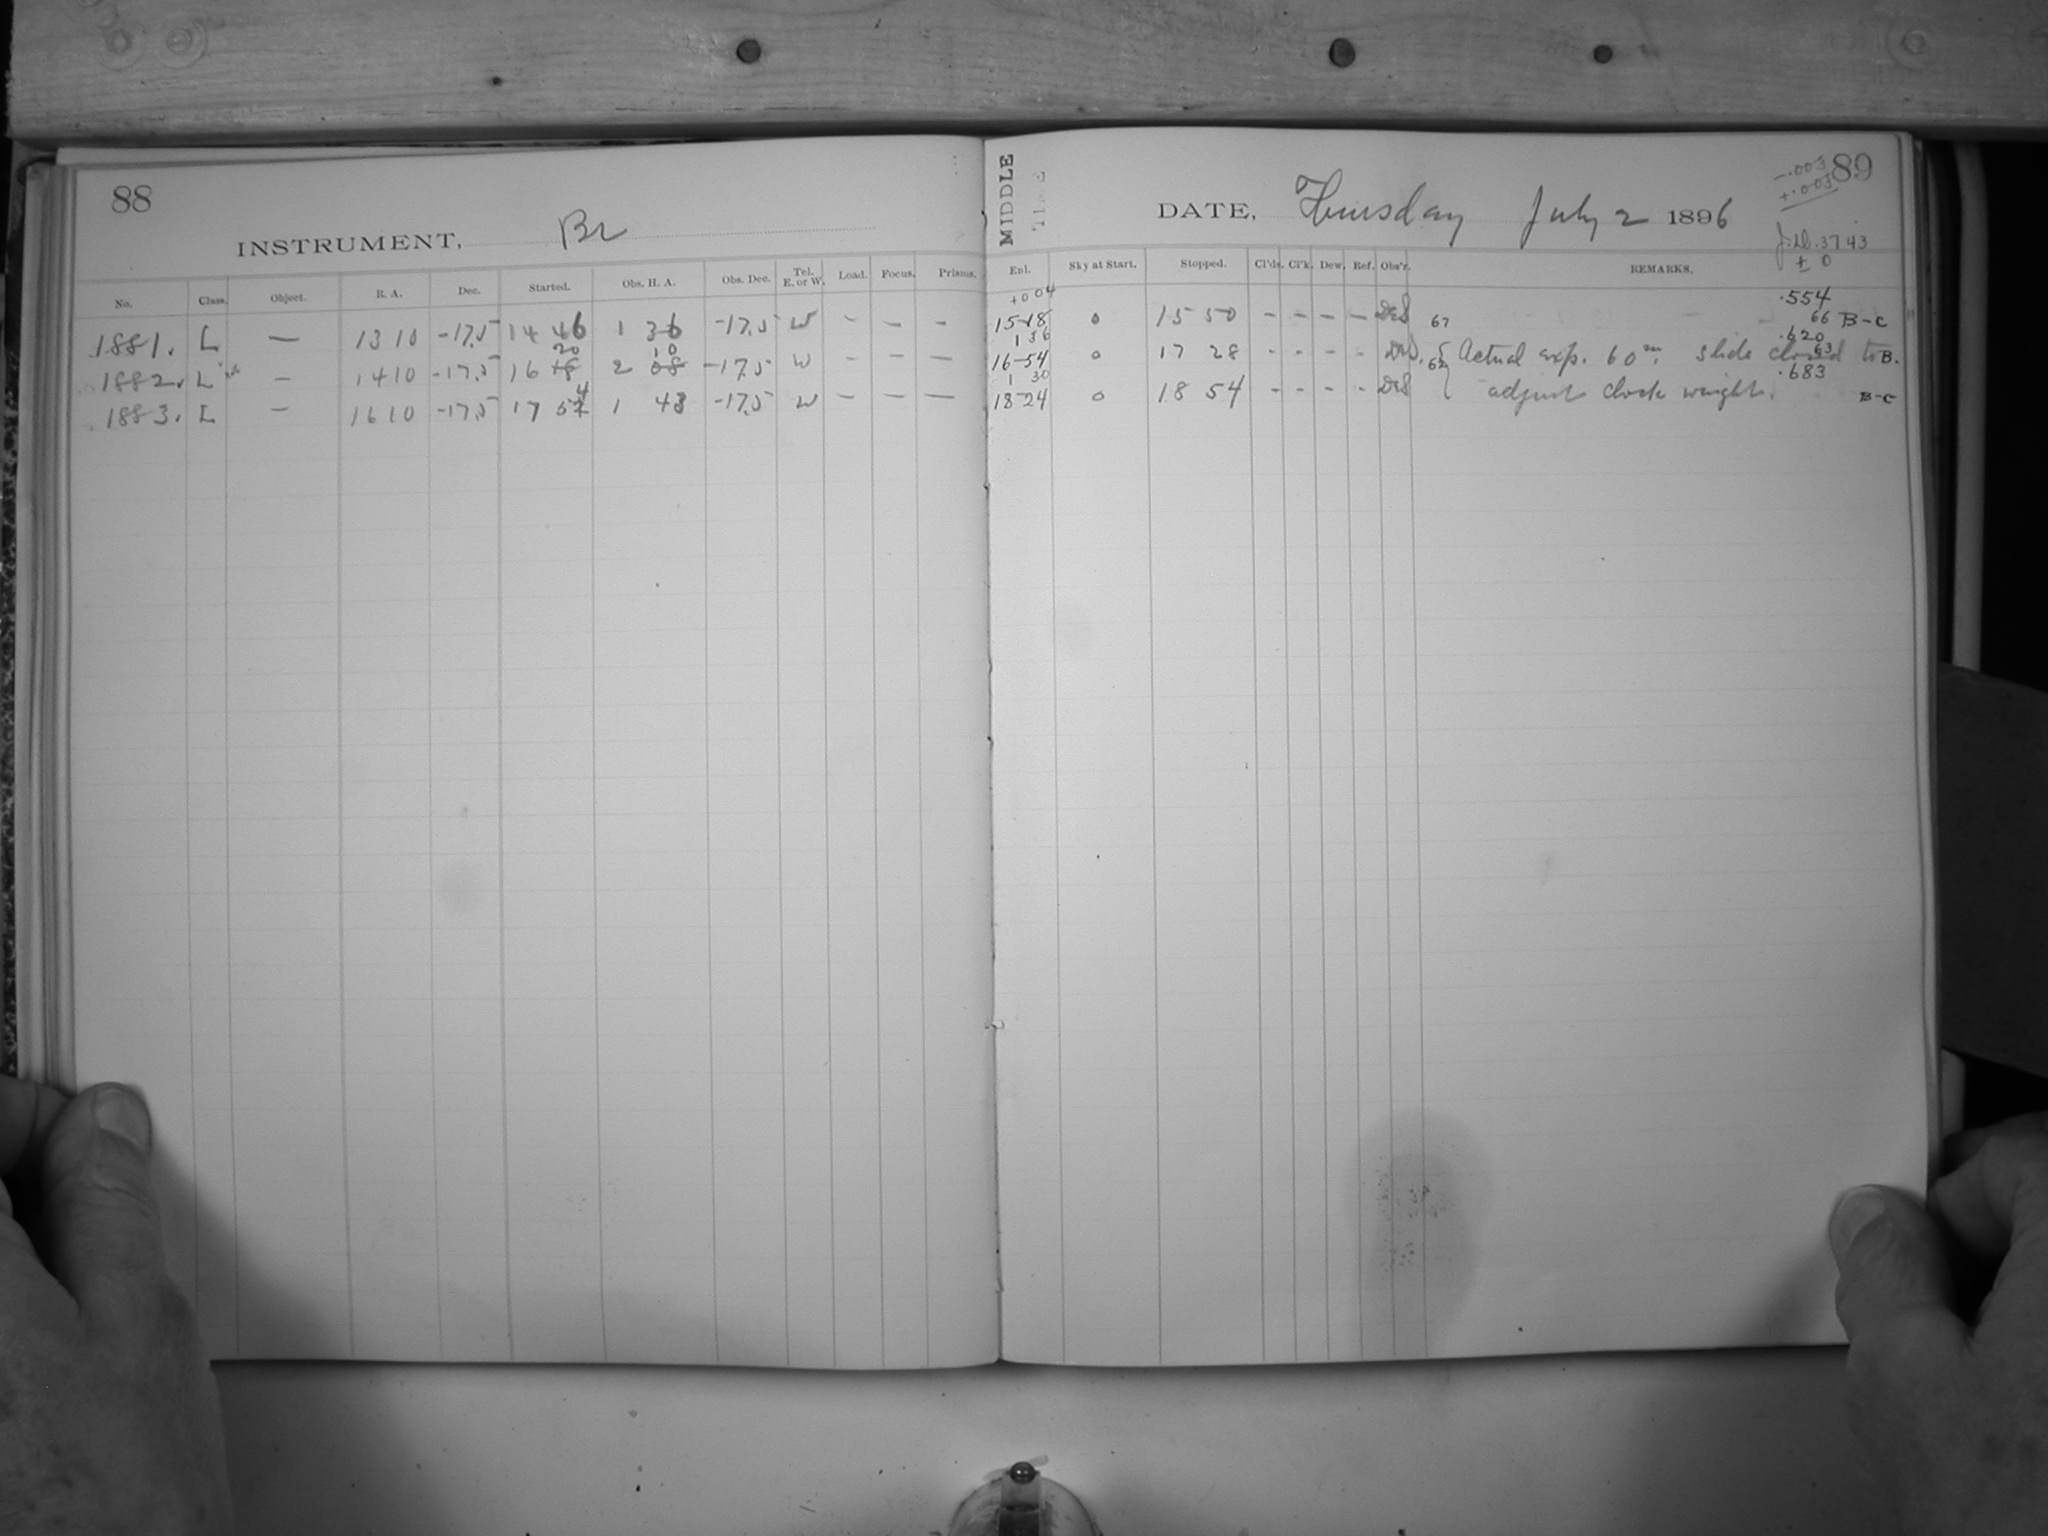 88
INSTRUMENT, Br
No. Class. Object. R. A. Dec. Started. Obs. H. A. Obs. Dec. Tel. E. or W. Load. Focus. Prisms.
1881. L — 13 10 -17.5 14 46 1 36 -17.5 W - - -
20 10
1882. L — 14 10 -17.5 16 18 2 08 -17.5 W - - -
4
1883. L — 16 10 -17.5 17 5 1 43 -17.5 W - - -
MIDDLE
-.003
+.003
89
DATE, Thursday July 2 1896
J.D. 3743
± 0
Enl. Sky at Start. Stopped. Cl'ds. Cl'k. Dew. Ref. Obs'r. REMARKS.
+0 04 .554
15-18 o 15 50 - - - - 67 66 B-C
1 36 .620
16-54 o 17 28 - - - - 62 { Actual exp. 60m. slide closed to B.
63
1 30 .683
18-24 o 18 54 - - - - adjust clock weight. B-C